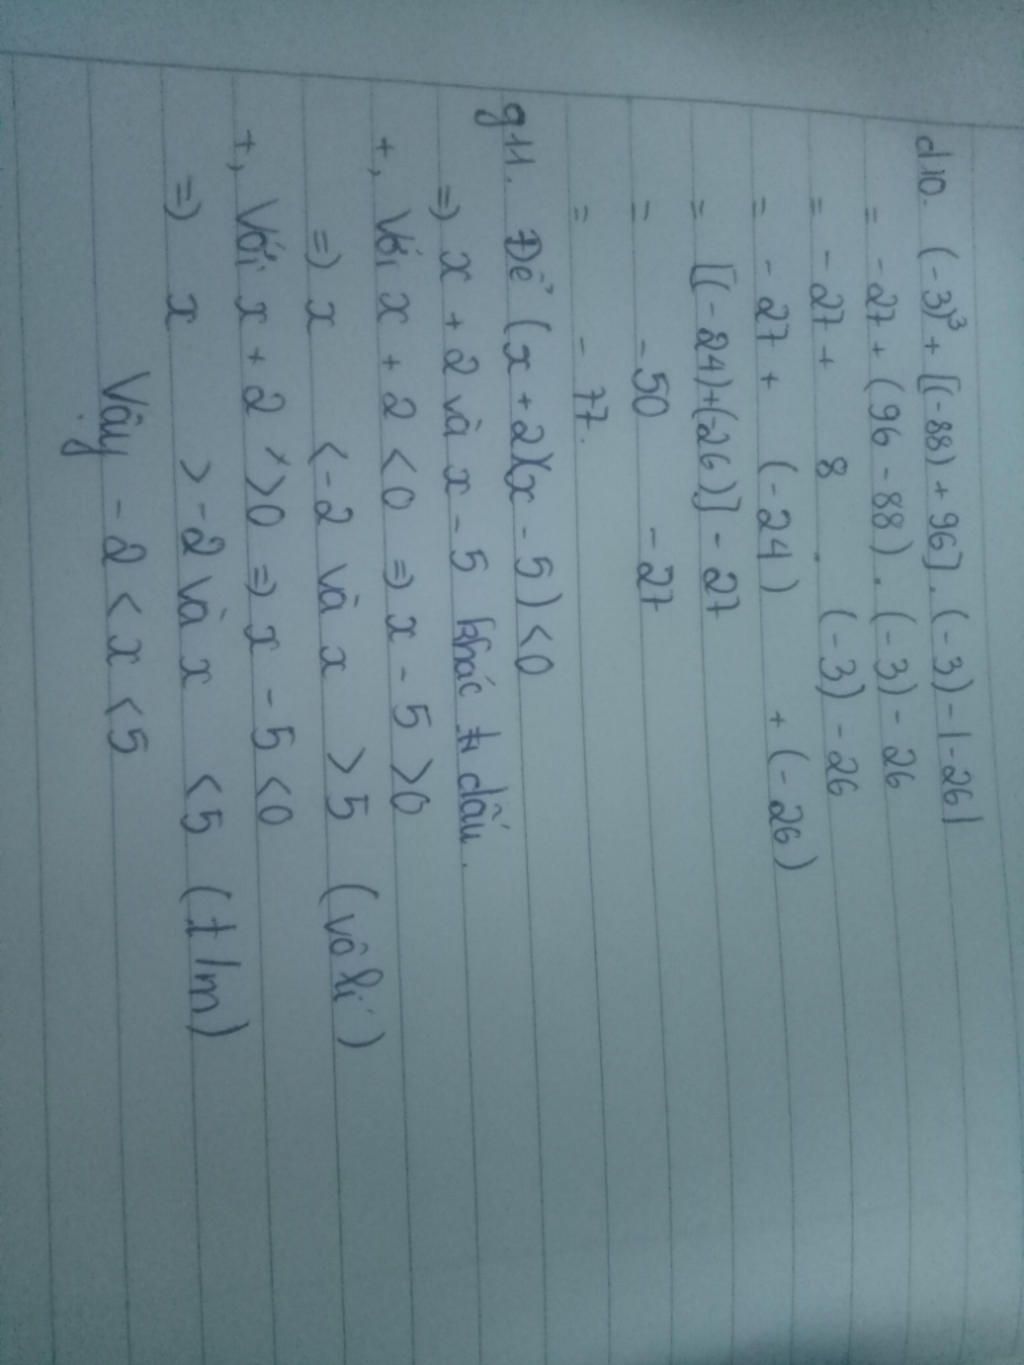 d10. (-3)³ + [(-88) + 96] . (-3) - |-26|
= -27 + (96 - 88) . (-3) - 26
= -27 + 8 . (-3) - 26
= -27 + (-24) + (-26)
= [(-24)+(-26)] - 27
= -50 - 27
= -77.
g11. Để (x + 2)(x - 5) < 0
=) x + 2 và x - 5 khác dấu.
+, Với x + 2 < 0 =) x - 5 > 0
=) x < -2 và x > 5 (vô lí)
+, Với x + 2 > 0 =) x - 5 < 0
=) x > -2 và x < 5 (t/m)
Vậy -2 < x < 5